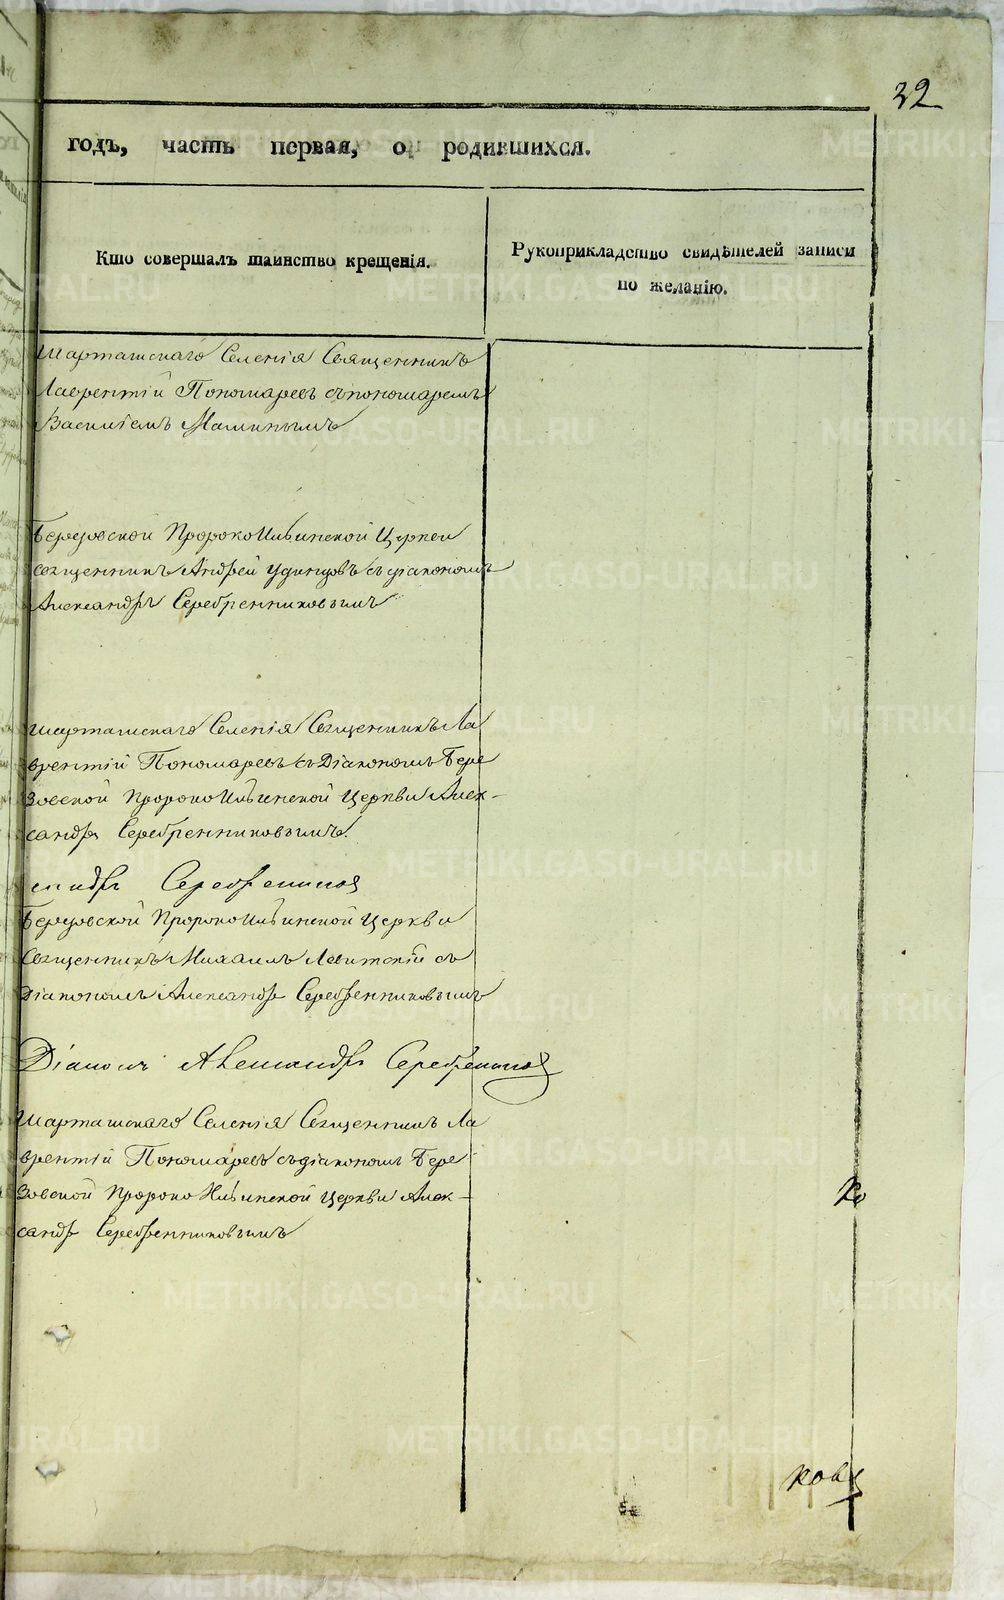 32
годъ, часть первая, о родившихся.
Кто совершалъ таинство крещенія.
Рукоприкладство свидѣтелей записи
по желанію.
Шарташскаго Селенія Священникъ
Лаврентій Пономаревъ съ пономаремъ
Василіемъ Маминымъ
Березовской Пророкоильинской Церкви
священникъ Андрей Удинцовъ съ діакономъ
Александръ Серебренниковымъ
Шарташскаго Селенія Священникъ Ла
врентій Пономаревъ съ Діакономъ Бере
зовской Пророкоильинской Церкви Алек-
сандръ Серебренниковымъ.
Серебренников
Березовской Пророкоильинской Церкви
Священникъ Михаилъ Левитскій съ
Діакономъ Александръ Серебренниковымъ
Діаконъ Александръ Серебренников
Шарташскаго Селенія Священникъ Ла
врентій Пономаревъ съ діакономъ Бере
зовской Пророко Ильинской Церкви Алек-
сандръ Серебренниковымъ
METRIKI.GASO-URAL.RU